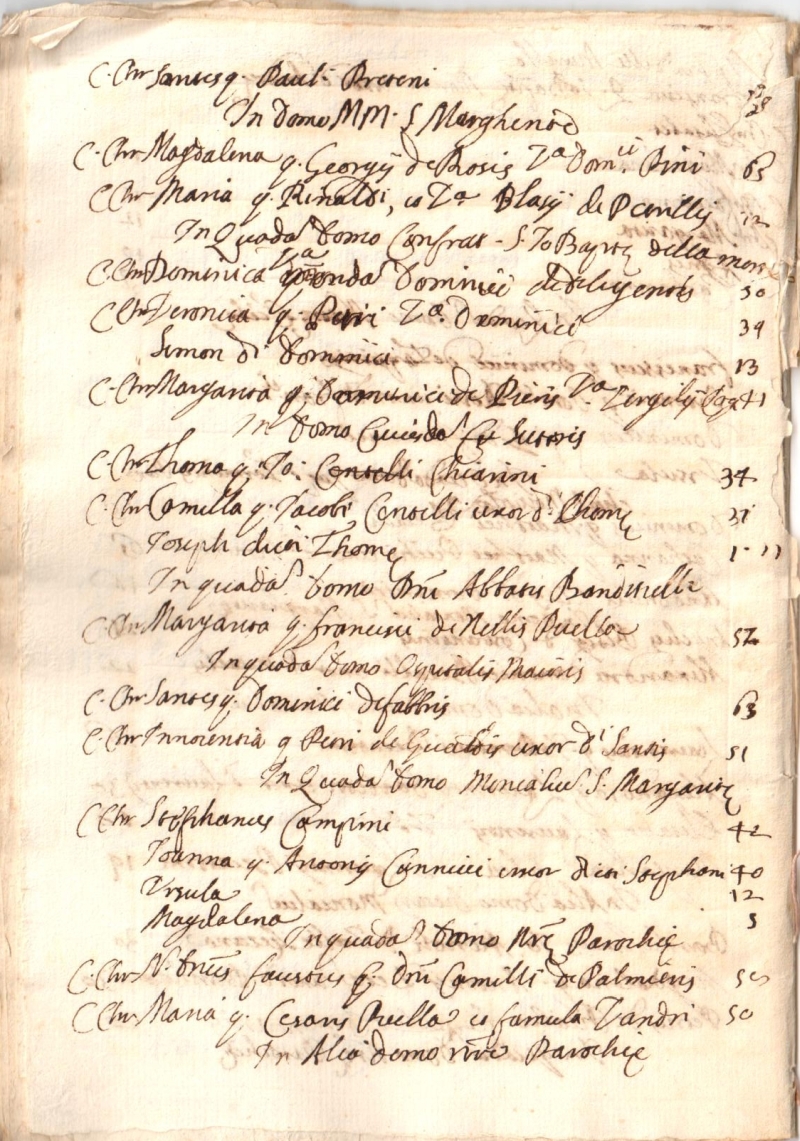 C. Chr Santes q. Pauli Preteni
In domo MM. S Margherite
C. Chr Magdalena q. Georgij de Rosis Va Domci Pini 63
C Chr Maria q. Rinaldi, et Va Blasij de 12
In Quada domo Confrat. S. Jo Bapte della morte
C. Chr Dominica Va Dominici 50
C Chr Veronica q. Petri Va. Dominici 34
Simon di Dominici 13
C. Chr Margarita q. Dominici de Pieris Va Vergilij 41
In domo Cuiusda Sutoris
C. Chr Thoma q. Jo: Centelli Chiarini 34
C. Chr Camilla q. Jacobi Centelli uxor di Thome 31
Joseph dicti Thome
In quada domo Dni Abbatis Bandinelli
C. Chr Margarita q. francisci de Nellis Puella 52
In quada domo Ospitalis Maioris
C. Chr Santes q. Dominici de fabbris 63
C. Chr Innocentia q Petri de uxor di Santis 51
In Quada domo Monealiu S. Margarite
C Chr Stephanus Campini 42
Joanna q. Antonij Cannucci uxor dicti Stephani 40
Ursula 12
Magdalena 5
In quada domo Nre Parochie
C. Chr N. Dnus faustus q. Dni Camilli de Palmieris 50
C Chr Maria q. Cesaris Puella et famula 50
In Alia domo nre Parochie